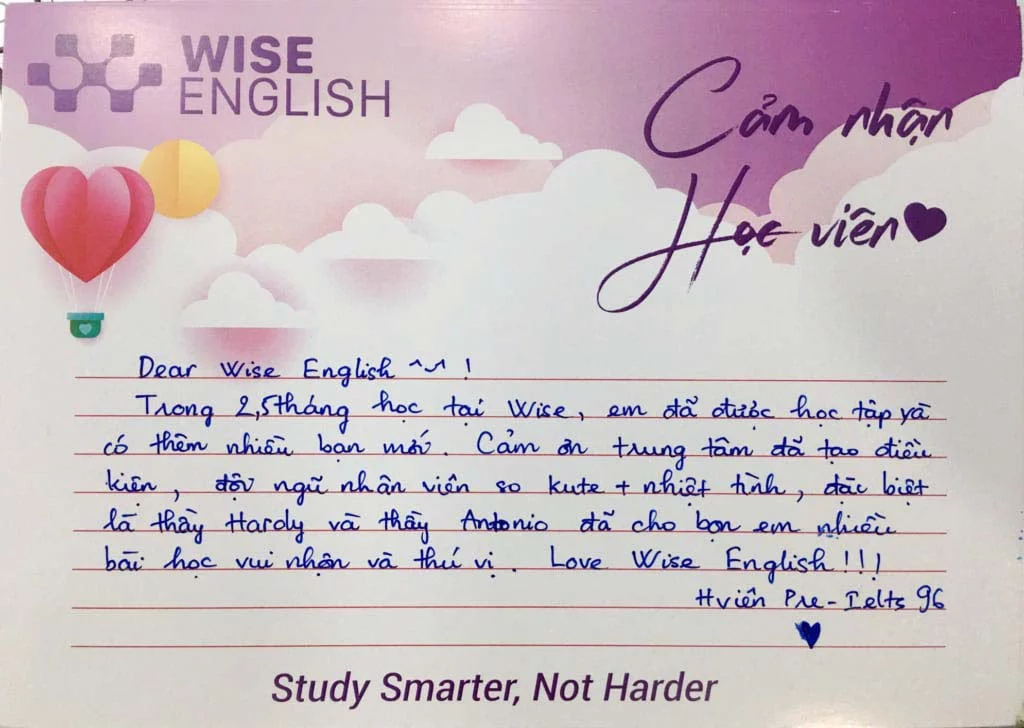 WISE
ENGLISH
Cảm nhận
Học viên
Dear Wise English ^~^ !
Trong 2,5 tháng học tại Wise, em đã được học tập và
có thêm nhiều bạn mới. Cảm ơn trung tâm đã tạo điều
kiện, đội ngũ nhân viên so kute + nhiệt tình, đặc biệt
là thầy Hardy và thầy Antonio đã cho bọn em nhiều
bài học vui nhộn và thú vị. Love Wise English!!!
Hviên Pre-Ielts 96
Study Smarter, Not Harder